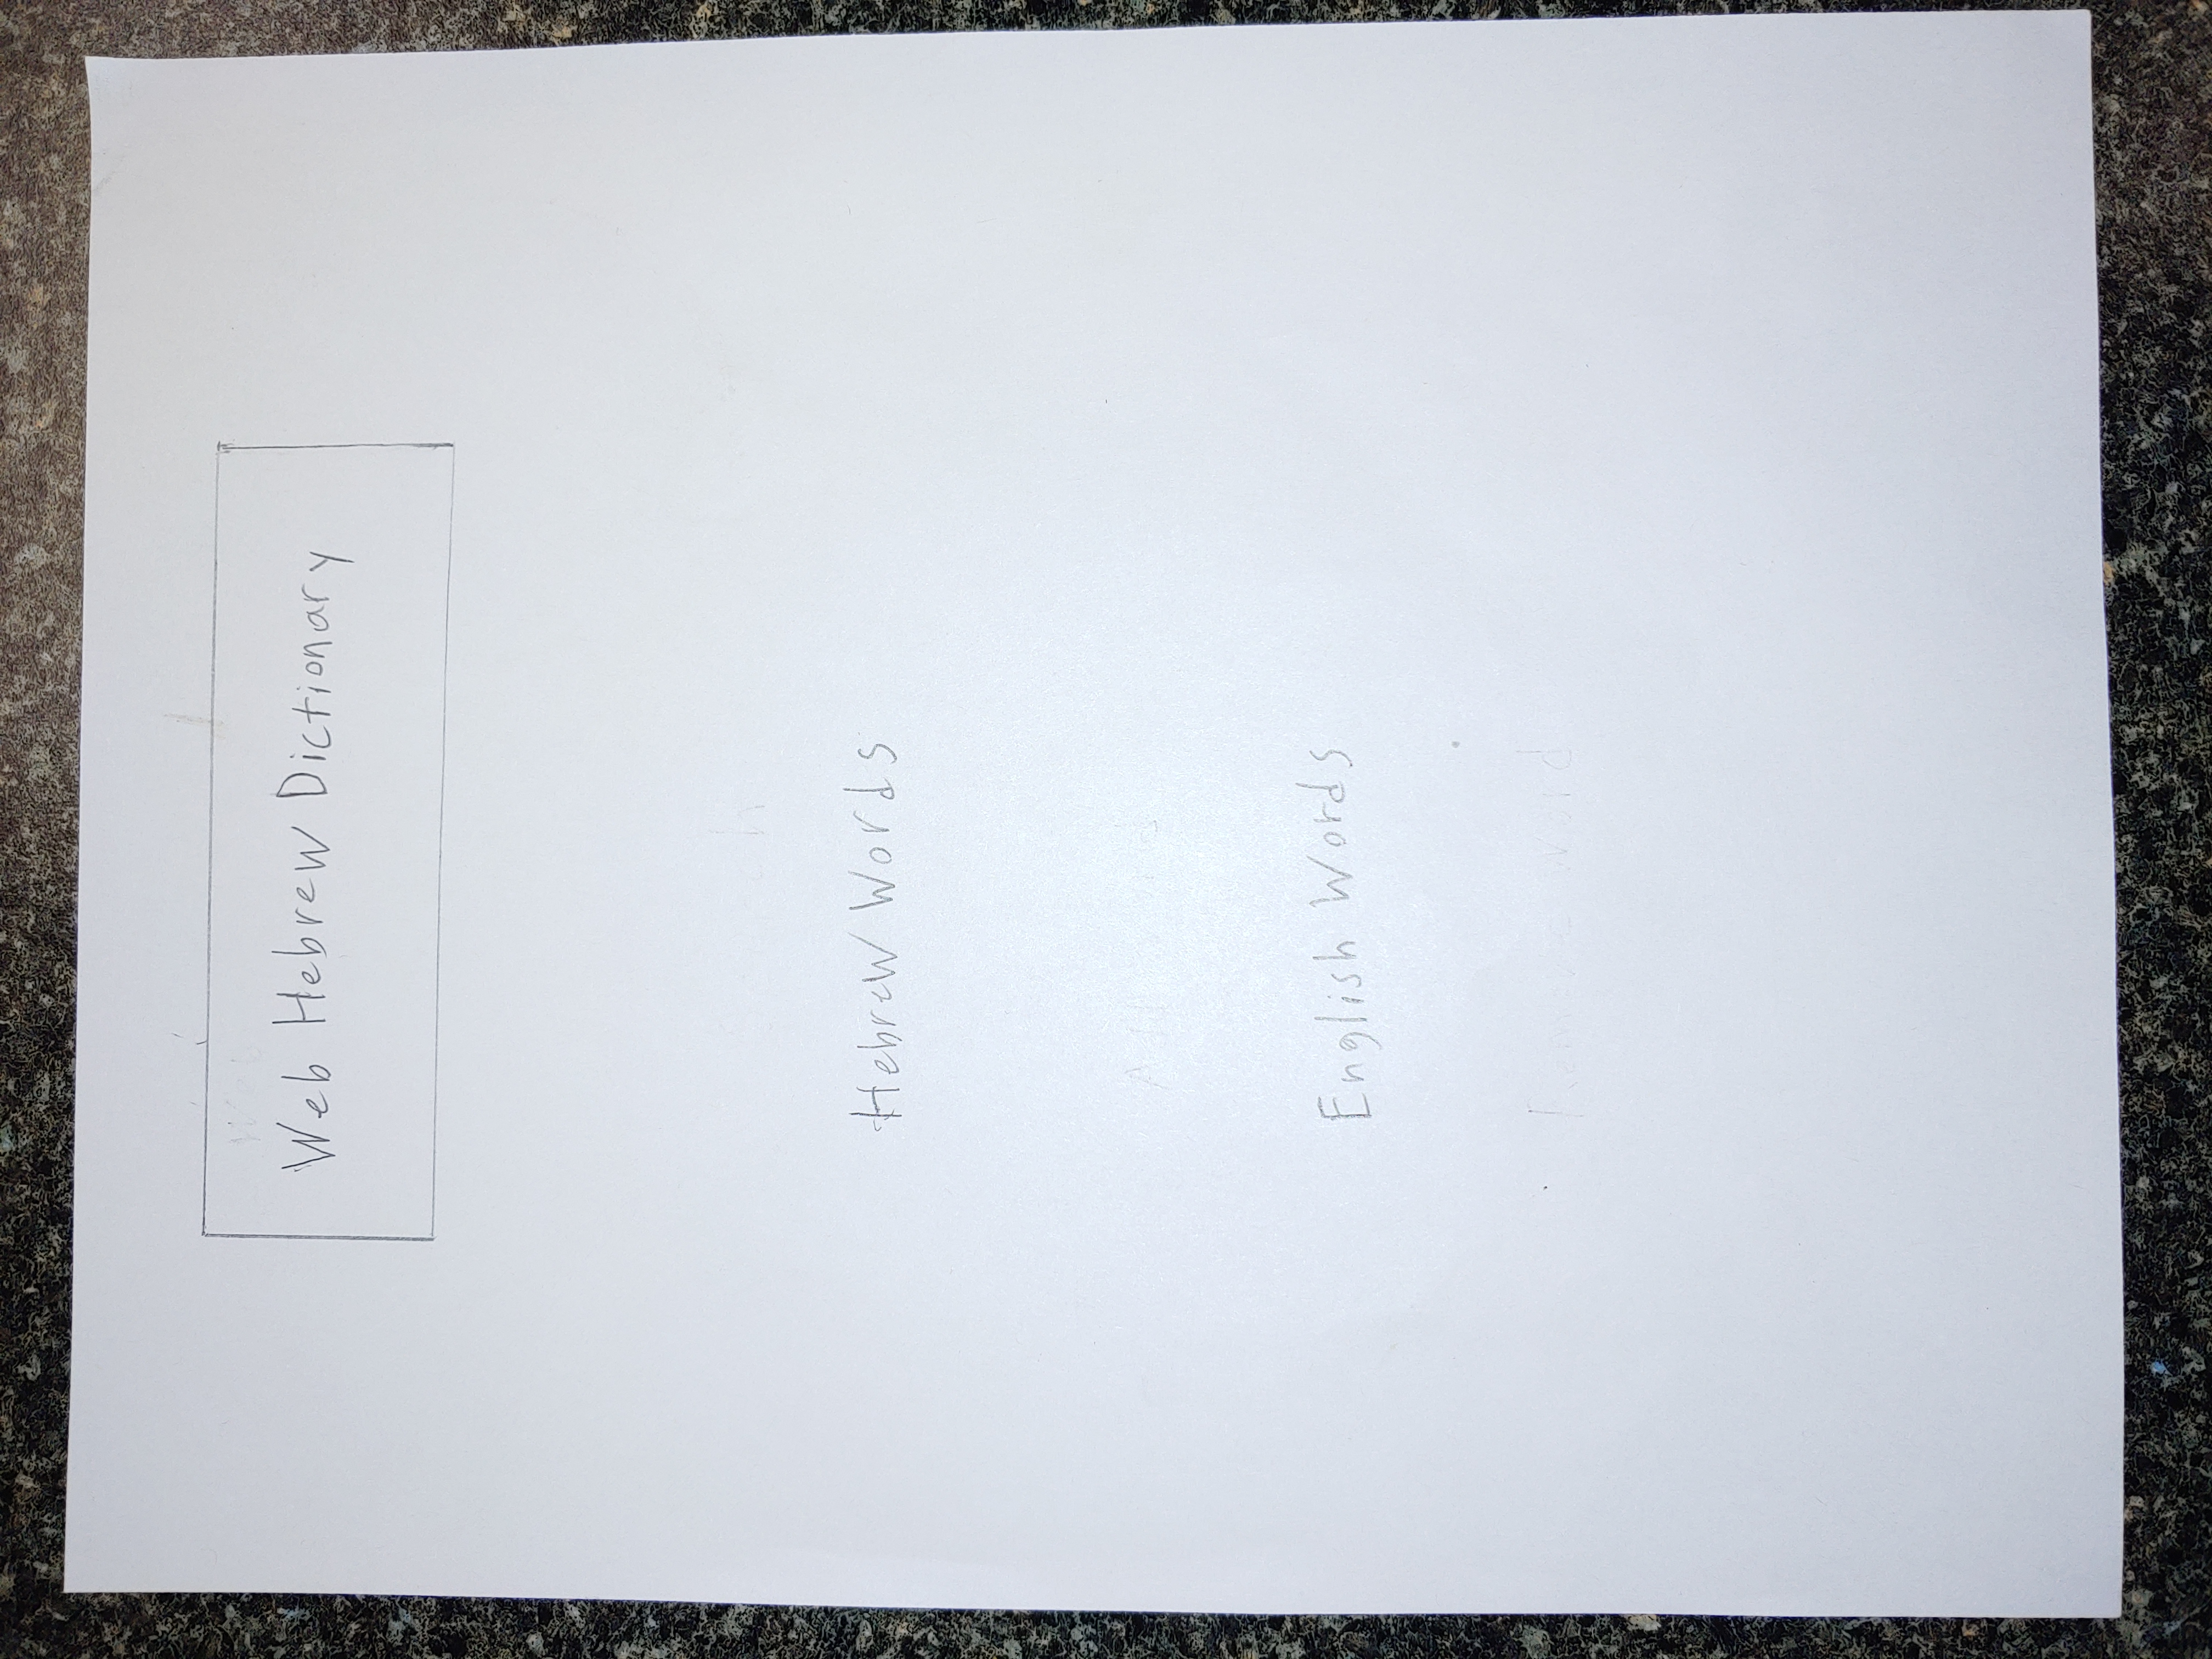 Web Hebrew Dictionary
Hebrew Words
English Words